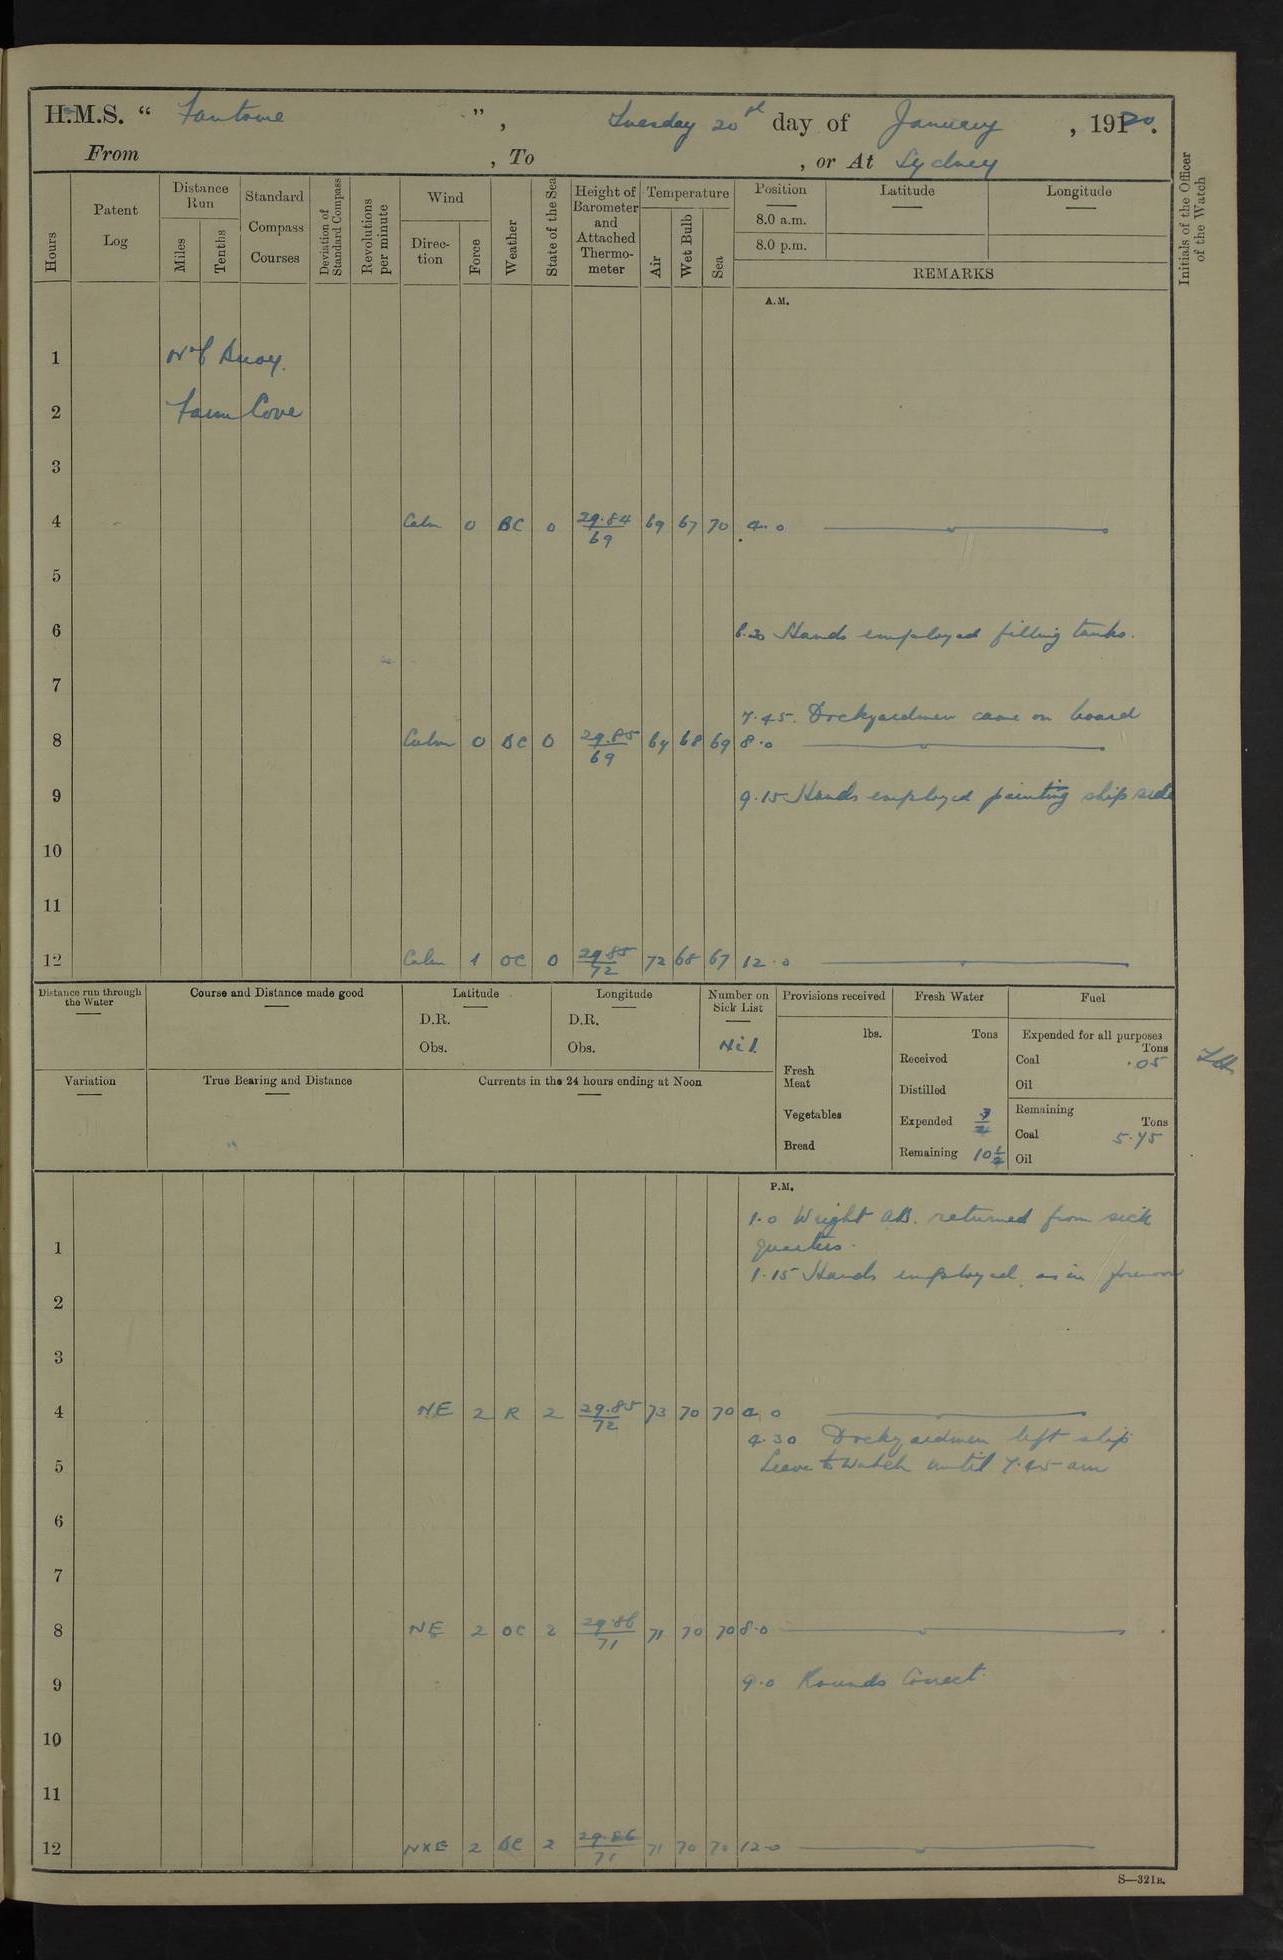 H.M.S. “ Fantome ”, Tuesday 20st day of January, 1920.
From , To , or At Sydney
Hours
Patent Log
Distance Run
Miles
Tenths
Standard Compass Courses
Deviation of Standard Compass
Revolutions per minute
Wind
Direc- tion
Force
Weather
State of the Sea
Height of Barometer and Attached Thermo- meter
Temperature
Air
Wet Bulb
Sea
Position Latitude Longitude
8.0 a.m.
8.0 p.m.
REMARKS
Initials of the Officer of the Watch
A.M.
1 Buoy.
2 Farm Cove
3
4 Calm 0 BC 0 29.84/69 69 67 70 4.0
5
6 6.30 Hands employed filling tanks.
7
7.45. Dockyardmen came on board
8 Calm 0 BC 0 29.85/69 69 68 69 8.0
9 9.15 Hands employed painting ship side
10
11
12 Calm 1 OC 0 29.85/72 72 68 67 12.0
Distance run through the Water
Course and Distance made good
Latitude
D.R.
Obs.
Longitude
D.R.
Obs.
Number on Sick List
Nil.
Provisions received
lbs.
Fresh Meat
Vegetables
Bread
Fresh Water
Tons
Received
Distilled
Expended
Remaining 10½
Fuel
Expended for all purposes
Tons
Coal .05
Oil
Remaining
Tons
Coal 5.75
Oil
Variation
True Bearing and Distance
Currents in the 24 hours ending at Noon
P.M.
1.0 Wright AB. returned from sick
1 quarters.
1.15 Hands employed as in forenoon
2
3
4 NE 2 R 2 29.85/72 73 70 70 4.0
4.30 Dockyardmen left ship
5 Leave to Watch until 7.45 am
6
7
8 NE 2 OC 2 29.86/71 71 70 70 8.0
9 9.0 Rounds Correct.
10
11
12 NXE 2 BC 2 29.86/71 71 70 70 12.0
S—321B.